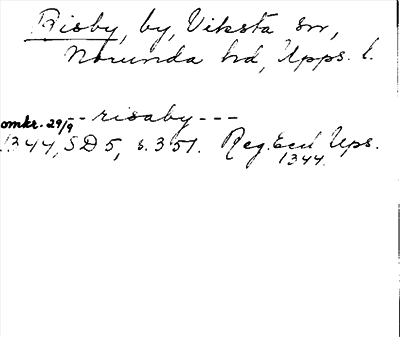 Risby, by, Viksta sn,
Norunda hd, Upps. l.
-- risaby ---
omkr. 29/9
1344, SD 5, s. 351. Reg. Eccl Ups.
1344.